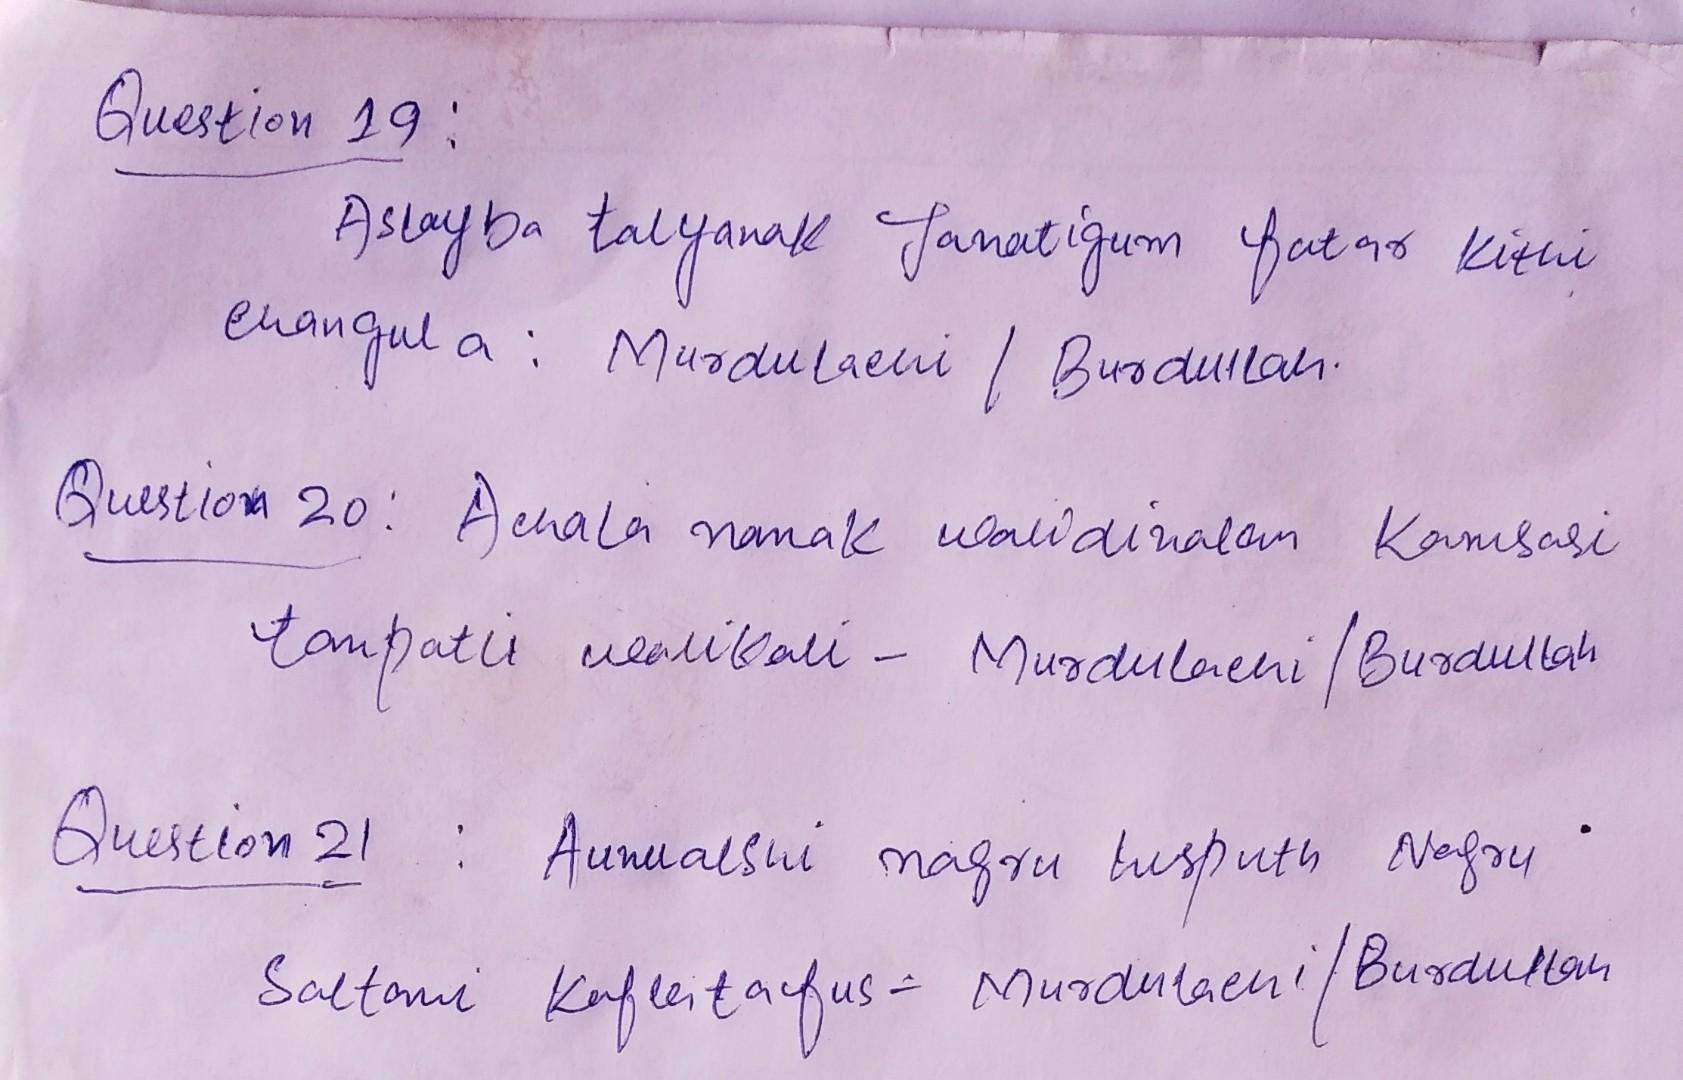 Question 19:
Aslayba talyanak Janatigum fatar Kithi
changula: Murdulachi / Burdullah.
Question 20: Achala namak walidinalam Kamsasi
tampatli walikali - Murdulachi/Burdullah
Question 21 : nagru husputh Nagru
Saltami - Murdulachi/Burdullah